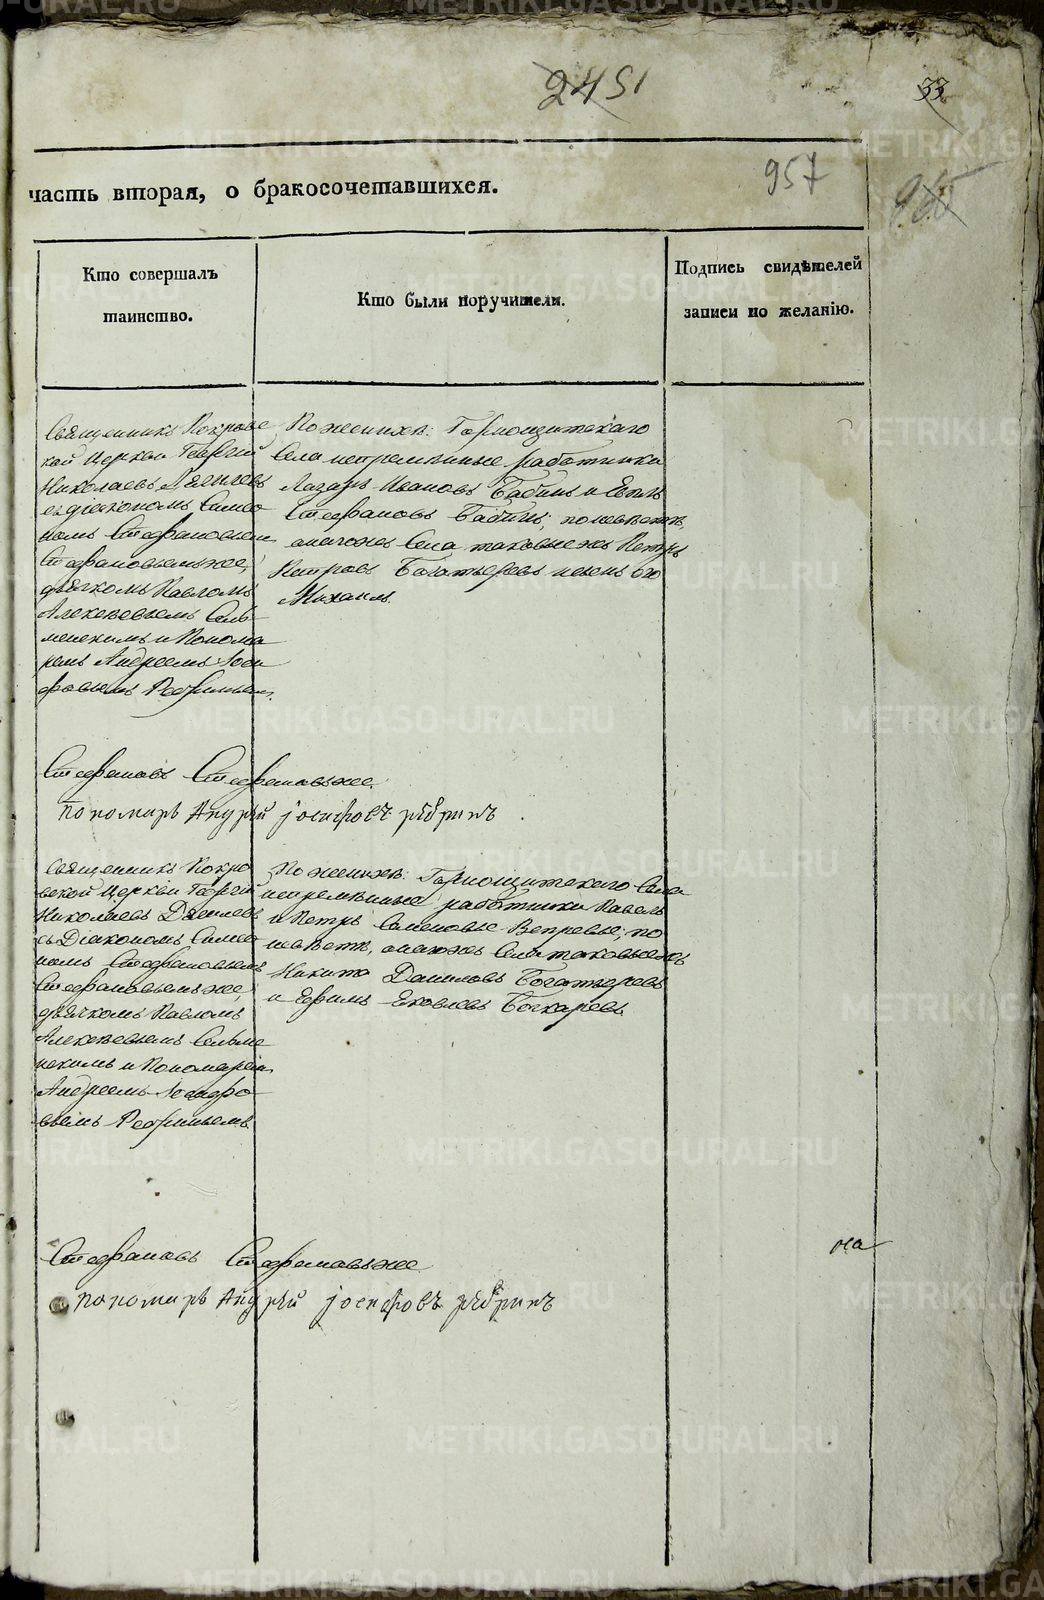 2451
33
957
часть вторая, о бракосочетавшихся.
Кто совершалъ
таинство.
Кто были поручители.
Подпись свидѣтелей
записи по желанію.
Священникъ Покровс
кой Церкви Георгій
Николаевъ
съ діакономъ Симео
номъ Стефановымъ
Стефановымъ же,
дьячкомъ Павломъ
Алексѣевымъ Сель
менскимъ и Понома
ремъ Андреемъ Іоси
фовымъ Ребринымъ.
По женихѣ: Горнощитскаго
Села непремѣнные работники
Лазарь Ивановъ Бабинъ и
Стефановъ Бабинъ; по невѣстѣ,
онагожъ Села таковые жъ Петръ
Петровъ Богатыревъ и сынъ его
Михаилъ.
Стефановъ Стефановъ же.
пономарь Андрѣй іосифовъ рѣбринъ
Священникъ Покро
вской Церкви Георгій
Николаевъ
съ Діакономъ Симео
номъ Стефановымъ
Стефановымъ же,
дьячкомъ Павломъ
Алексѣевымъ Сельме
нскимъ и Пономаремъ
Андреемъ Іосифо
вымъ Ребринымъ
По женихѣ: Горнощитскаго Села
непремѣнные работники Павелъ
и Петръ Семеновы Вепревы; по
невѣстѣ, онагожъ Села таковые жъ
Никита Даниловъ Богатыревъ
и Ефимъ Яковлевъ Бочкаревъ.
Стефановъ Стефановъ же
на
пономарь Андрѣй іосифовъ рѣбринъ
METRIKI.GASO-URAL.RU